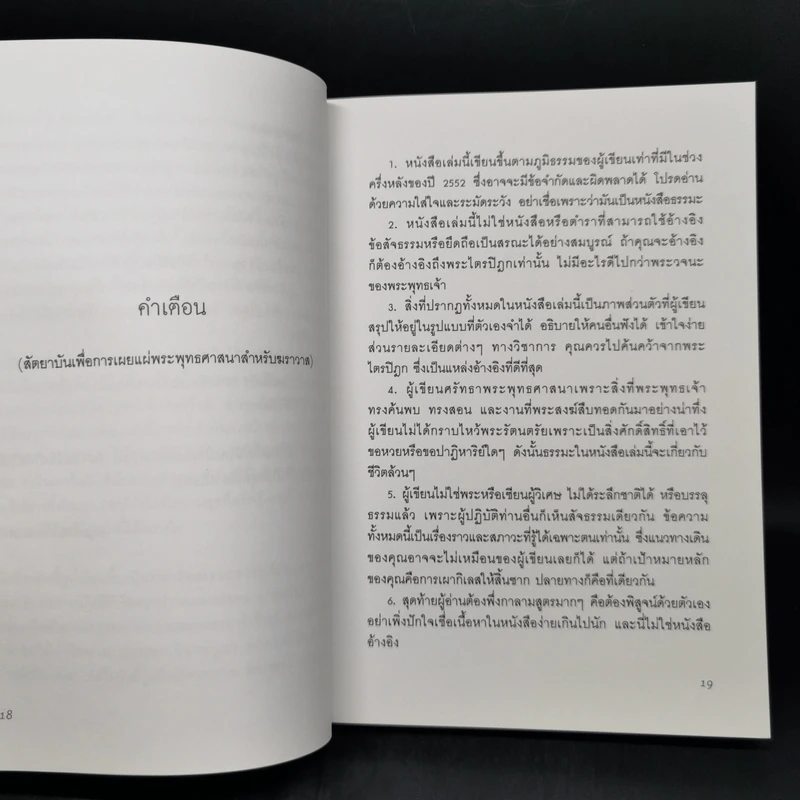 คำเตือน
(สัตยาบันเพื่อการเผยแผ่พระพุทธศาสนาสำหรับฆราวาส)
18
1. หนังสือเล่มนี้เขียนขึ้นตามภูมิธรรมของผู้เขียนเท่าที่มีในช่วง
ครึ่งหลังของปี 2552 ซึ่งอาจจะมีข้อจำกัดและผิดพลาดได้ โปรดอ่าน
ด้วยความใส่ใจและระมัดระวัง อย่าเชื่อเพราะว่ามันเป็นหนังสือธรรมะ
2. หนังสือเล่มนี้ไม่ใช่หนังสือหรือตำราที่สามารถใช้อ้างอิง
ข้อสัจธรรมหรือยึดถือเป็นสรณะได้อย่างสมบูรณ์ ถ้าคุณจะอ้างอิง
ก็ต้องอ้างอิงถึงพระไตรปิฎกเท่านั้น ไม่มีอะไรดีไปกว่าพระวจนะ
ของพระพุทธเจ้า
3. สิ่งที่ปรากฏทั้งหมดในหนังสือเล่มนี้เป็นภาพส่วนตัวที่ผู้เขียน
สรุปให้อยู่ในรูปแบบที่ตัวเองจำได้ อธิบายให้คนอื่นฟังได้ เข้าใจง่าย
ส่วนรายละเอียดต่างๆ ทางวิชาการ คุณควรไปค้นคว้าจากพระ
ไตรปิฎก ซึ่งเป็นแหล่งอ้างอิงที่ดีที่สุด
4. ผู้เขียนศรัทธาพระพุทธศาสนาเพราะสิ่งที่พระพุทธเจ้า
ทรงค้นพบ ทรงสอน และงานที่พระสงฆ์สืบทอดกันมาอย่างน่าทึ่ง
ผู้เขียนไม่ได้กราบไหว้พระรัตนตรัยเพราะเป็นสิ่งศักดิ์สิทธิ์ที่เอาไว้
ขอหวยหรือขอปาฏิหาริย์ใดๆ ดังนั้นธรรมะในหนังสือเล่มนี้จะเกี่ยวกับ
ชีวิตล้วนๆ
5. ผู้เขียนไม่ใช่พระหรือเซียนผู้วิเศษ ไม่ได้ระลึกชาติได้ หรือบรรลุ
ธรรมแล้ว เพราะผู้ปฏิบัติท่านอื่นก็เห็นสัจธรรมเดียวกัน ข้อความ
ทั้งหมดนี้เป็นเรื่องราวและสภาวะที่รู้ได้เฉพาะตนเท่านั้น ซึ่งแนวทางเดิน
ของคุณอาจจะไม่เหมือนของผู้เขียนเลยก็ได้ แต่ถ้าเป้าหมายหลัก
ของคุณคือการเผากิเลสให้สิ้นซาก ปลายทางก็คือที่เดียวกัน
6. สุดท้ายผู้อ่านต้องพึ่งกาลามสูตรมากๆ คือต้องพิสูจน์ด้วยตัวเอง
อย่าเพิ่งปักใจเชื่อเนื้อหาในหนังสือง่ายเกินไปนัก และนี่ไม่ใช่หนังสือ
อ้างอิง
19